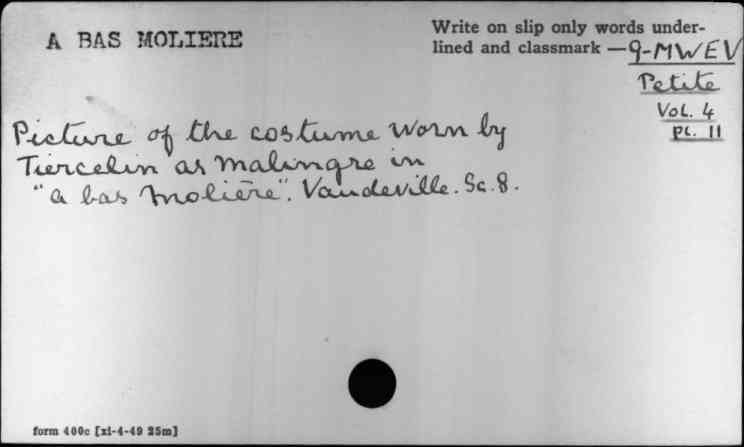 A BAS MOLIERE
Write on slip only words under-
lined and classmark — 9-MWEV
Petite
Vol. 4
pl. 11
Picture of the costume worn by
Tiercelin as Malingre in
"A bas Molière". Vaudeville. Sc. 8.
form 400c [xi-4-49 25m]